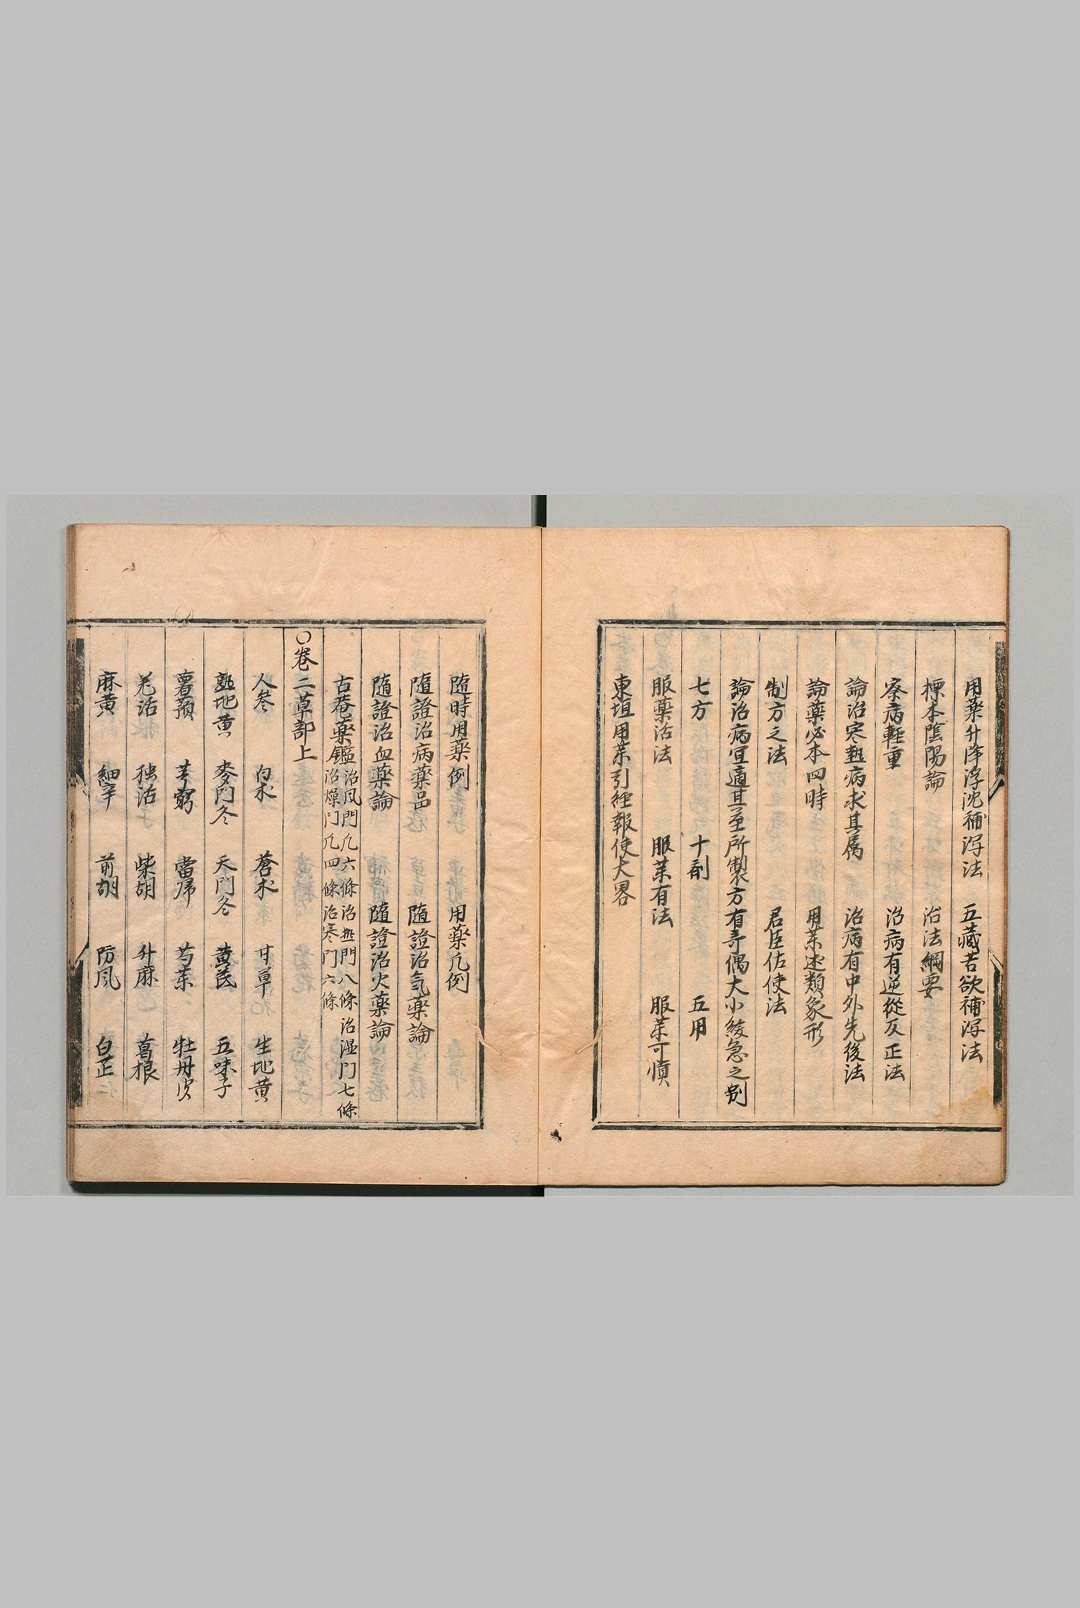 用薬升降浮沈補瀉法　五藏苦欲補瀉法
標本陰陽論　治法綱要
察病輕重　治病有逆從反正法
論治寒熱病求其属　治病有中外先後法
論薬必本四時　用茱述類象形
制方之法　君臣佐使法
論治病宜適其至所製方有奇偶大小緩急之别
七方　十剤　五用
服薬活法　服茱有法　服茱可愼
東垣用茱引経報使大畧
随時用薬例　用薬凡例
隨證治病薬品　隨證治氣薬論
隨證治血薬論　隨證治火薬論
古菴薬鑑 治風門凢六條治熱門八條治湿門七條
治燥門凢四條治寒門六條
〇巻二草部上
人参　白朮　蒼朮　甘草　生地黄
熟地黄　麥門冬　天門冬　黄芪　五味子
薯蕷　芎藭　當帰　芍茱　牡丹皮
羌活　独活　柴胡　升麻　葛根
麻黄　細辛　前胡　防風　白芷